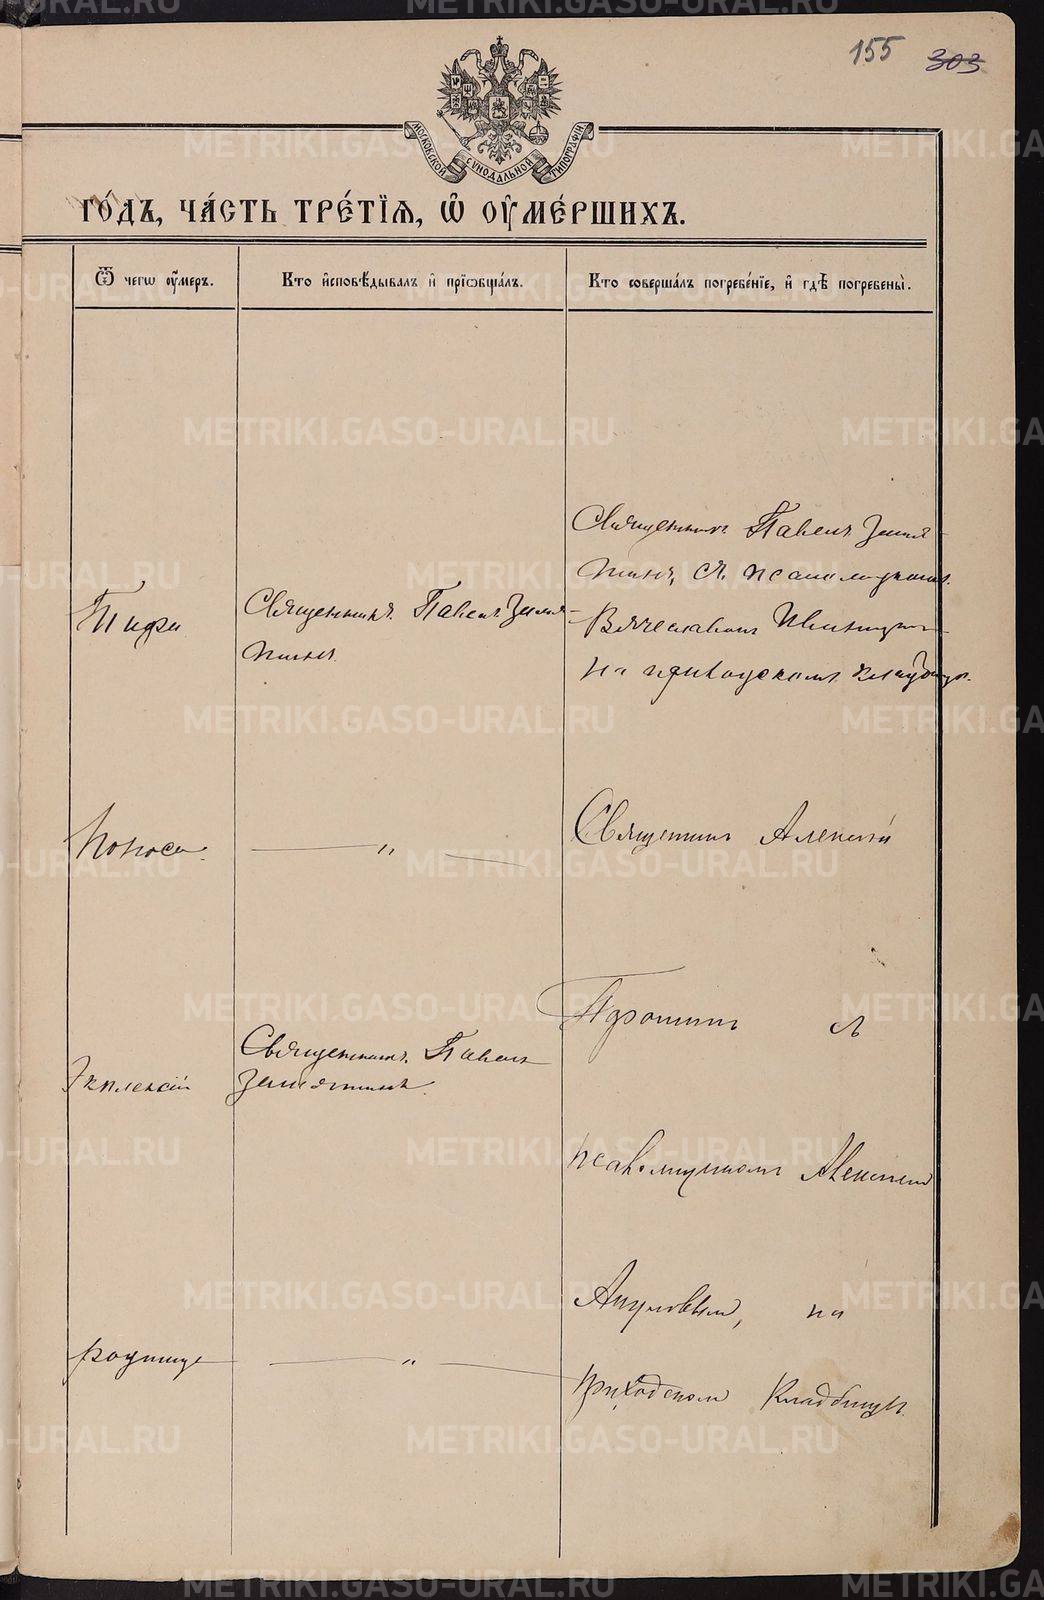 155 303
МОСКОВСКОЙ СѴНОДАЛЬНОЙ ТИПОГРАФІИ
го́дъ, ча́сть тре́тїѧ, ѽ ᲂу҆ме́ршихъ.
Ѿ чегѡ ᲂу҆́меръ.
Кто и҆сповѣ́дывалъ и҆ прїѡбща́лъ.
Кто соверша́лъ погребе́нїе, и҆ гдѣ̀ погребены̀.
Тифа
Священникъ Павелъ Замя-
тинъ
Священникъ Павелъ Замя-
тинъ, съ псаломщикомъ
Вячеславомъ
на приходскомъ кладбищѣ.
Поноса
"
Священникъ Алексѣй
съ
Эклапсій
Священникъ Павелъ
Замятинъ
псаломщикомъ Алексѣемъ
на
родимца
"
приходскомъ кладбищѣ.
METRIKI.GASO-URAL.RU